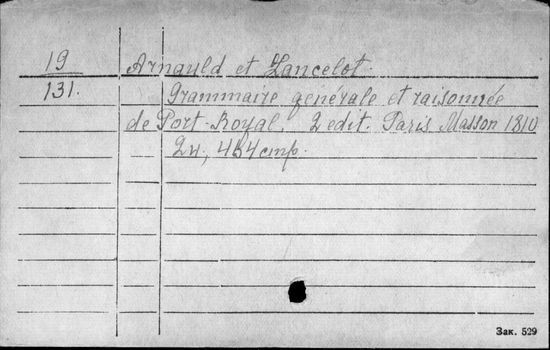 19 Arnauld et Lancelot.
131. Grammaire générale et raisonnée
de Port-Royal. 2 edit. Paris. Masson 1810
24, 464 стр.
Зак. 529